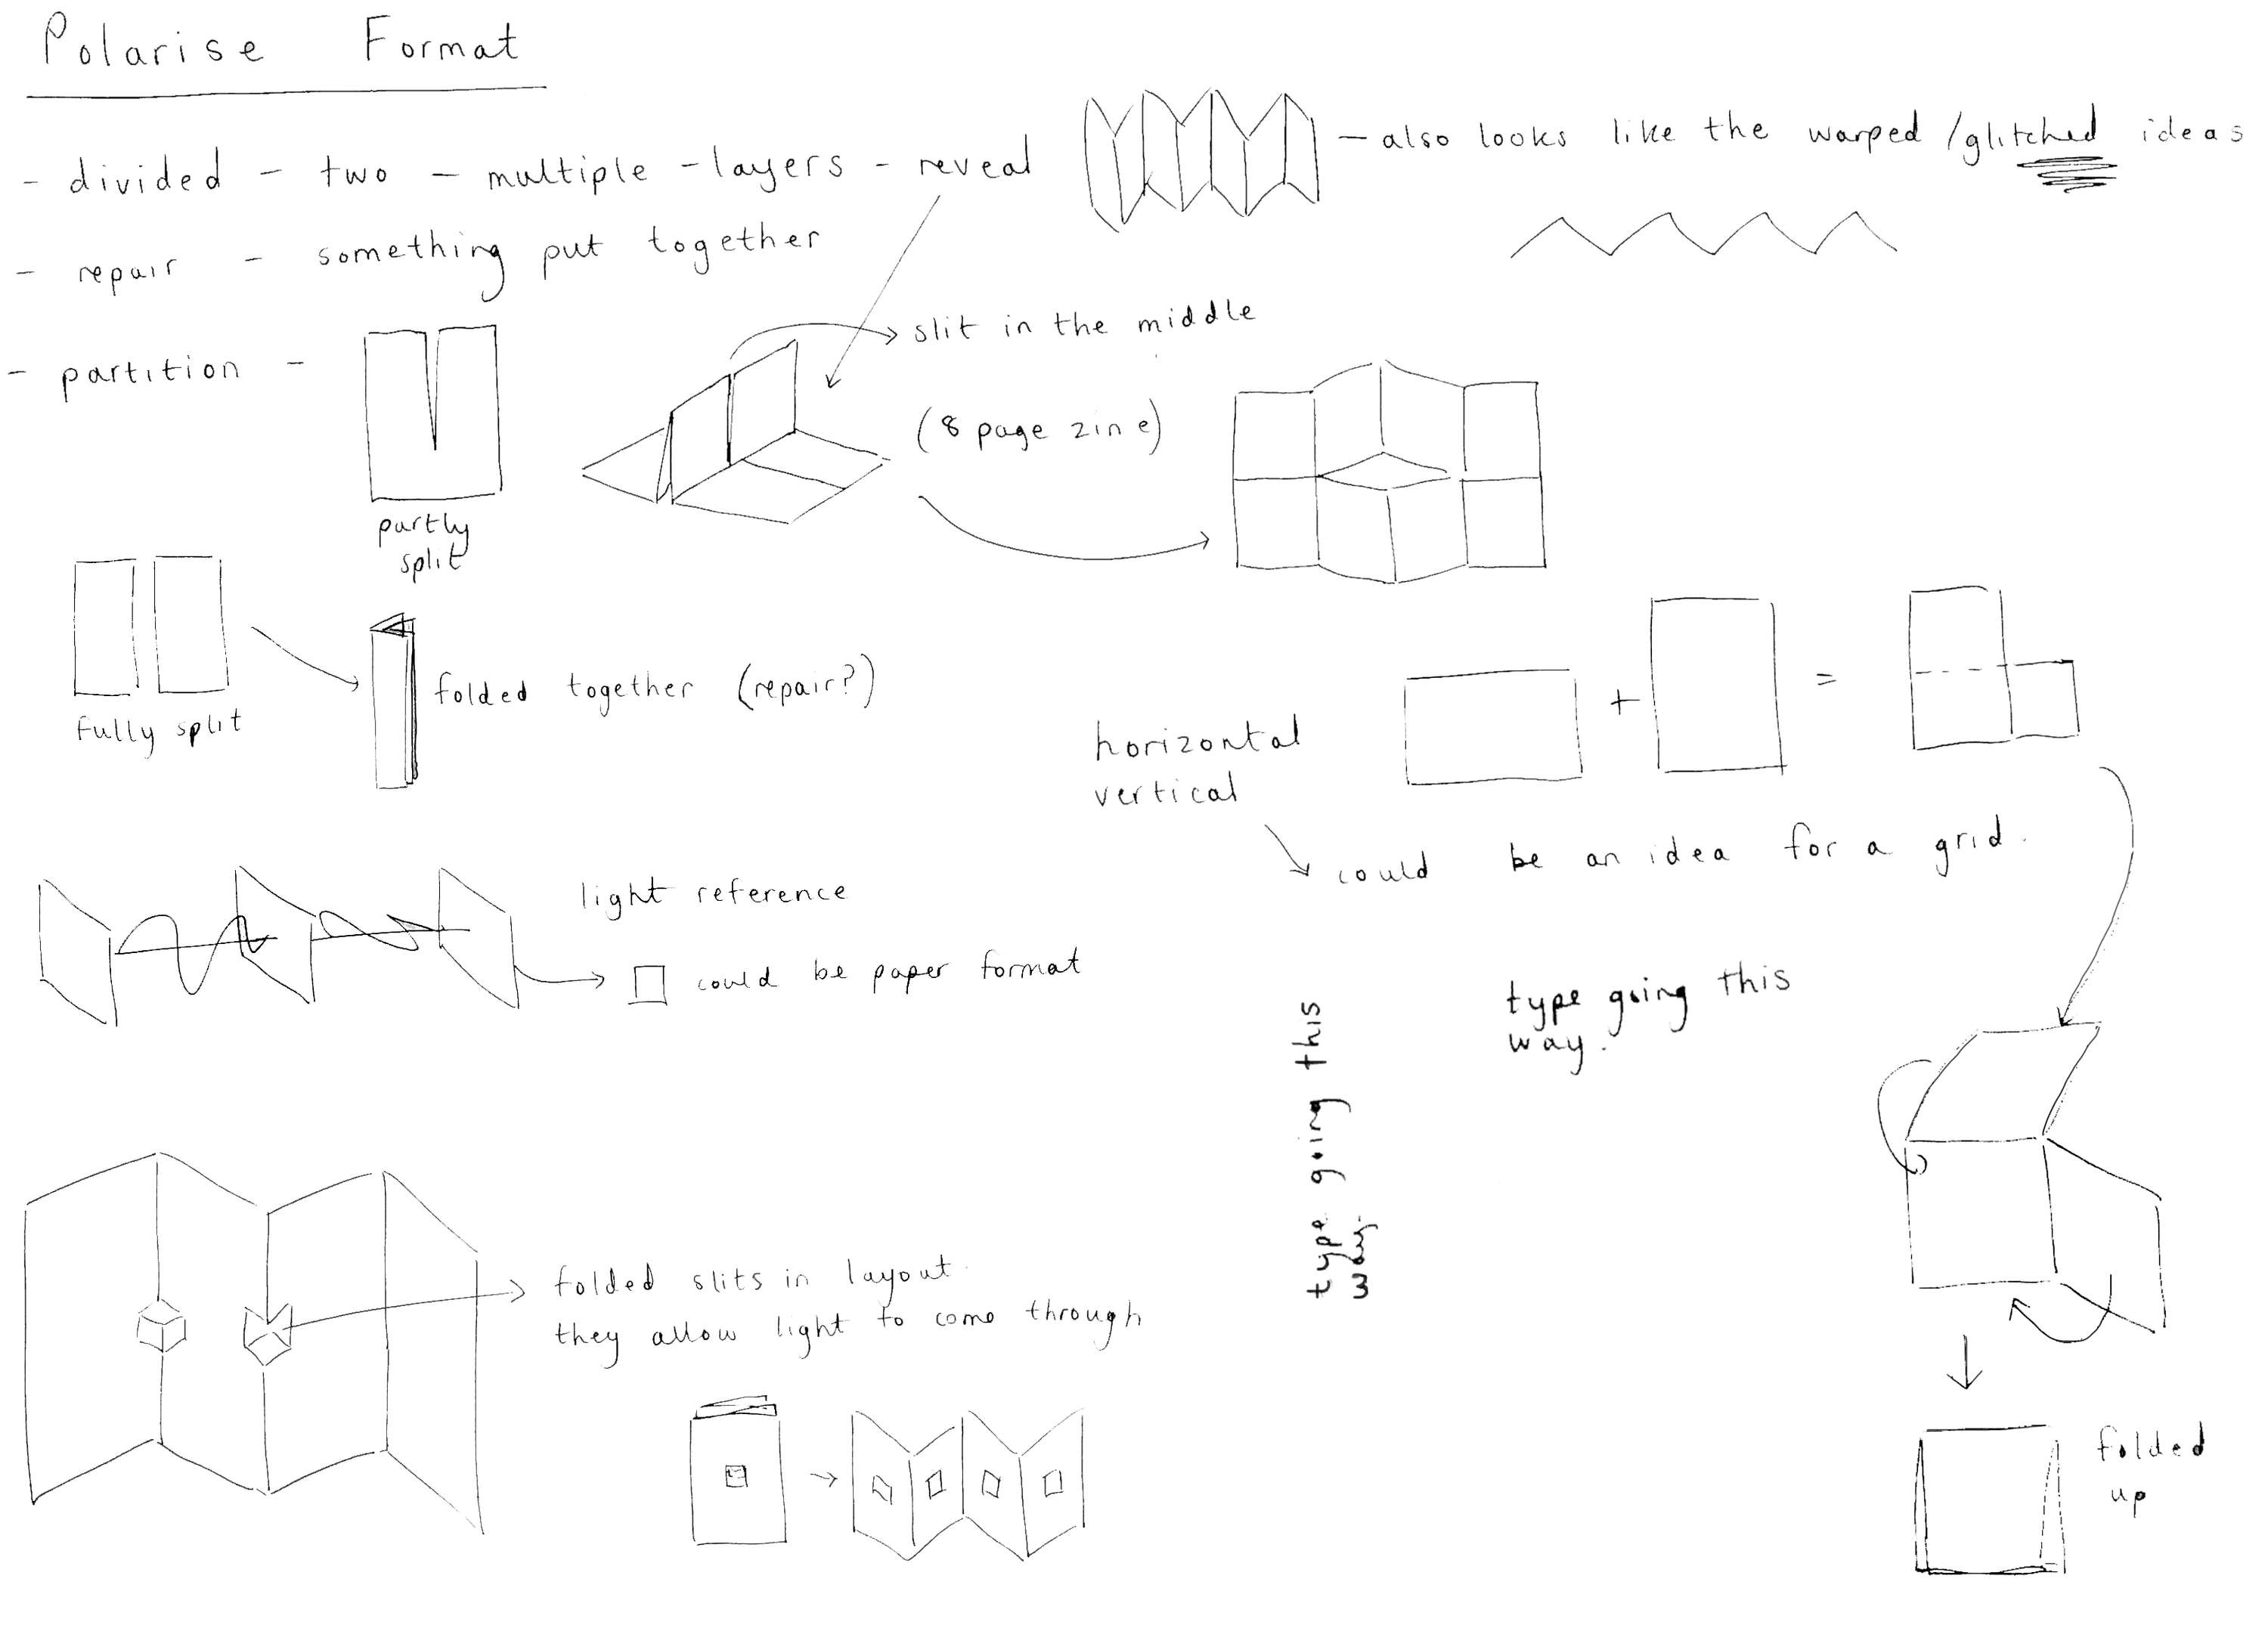 Polarise Format
- divided - two - multiple - layers - reveal
- also looks like the warped / glitched ideas
- repair - something put together
- partition -
partly
split
slit in the middle
(8 page zine)
fully split
folded together (repair?)
horizontal
vertical
+
=
could be an idea for a grid.
light reference
could be paper format
type going this
way.
type going this
way.
folded slits in layout.
they allow light to come through
folded
up